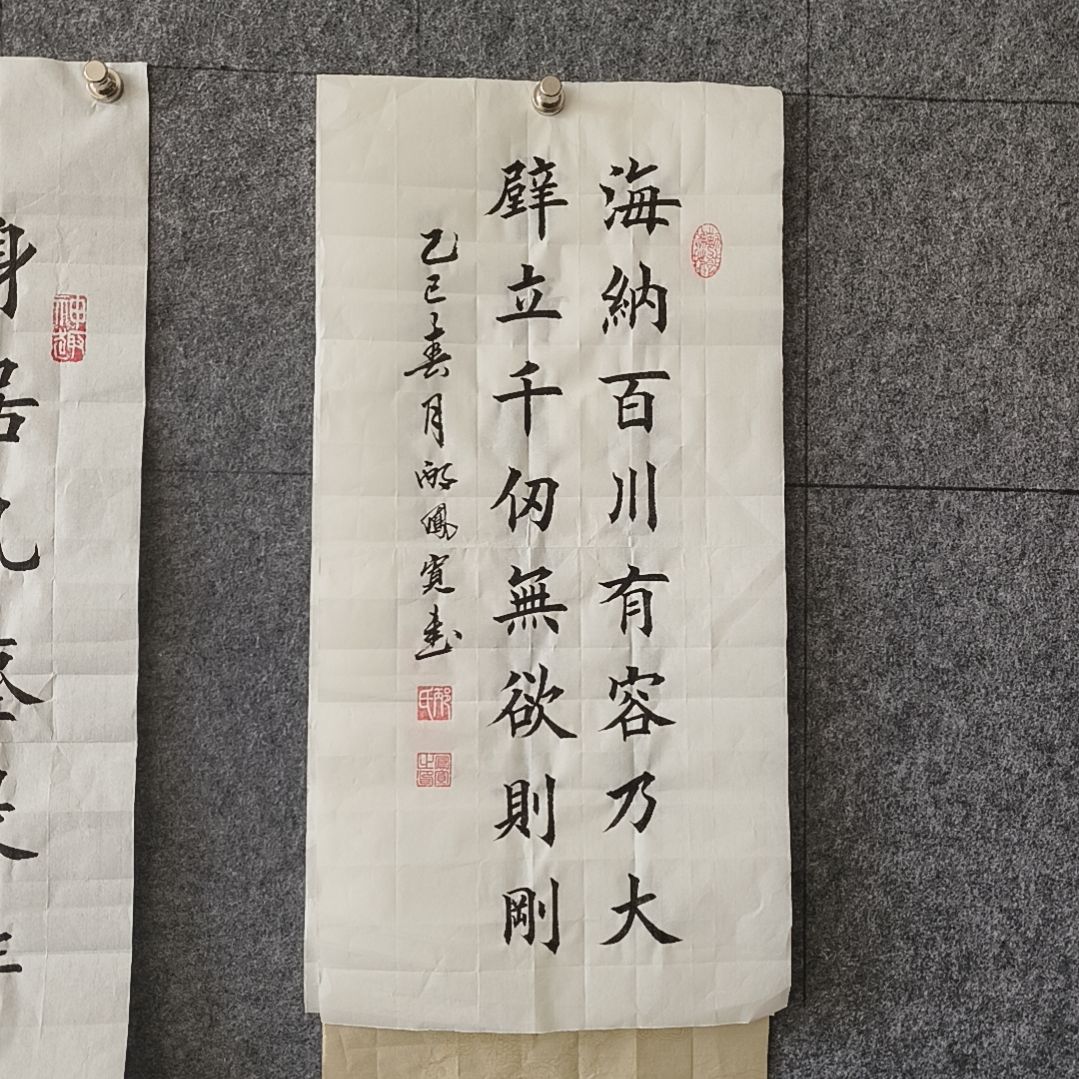 海納百川有容乃大
壁立千仞無欲則剛
乙巳春月鳳寬書
神趣